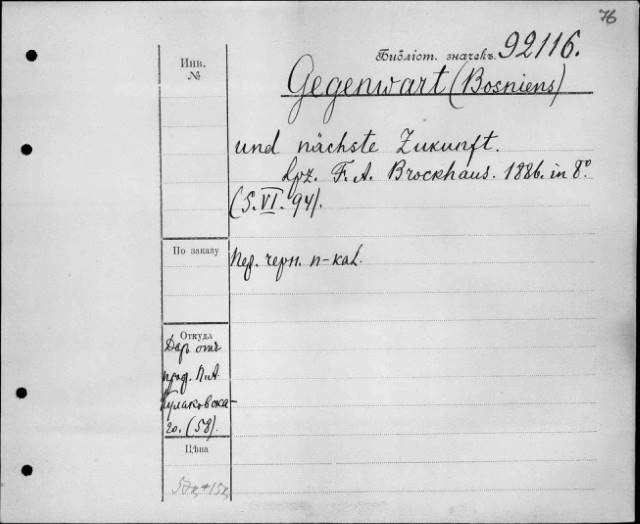 76
Библіот. значекъ. 92116.
Инв.
№
Gegenwart (Bosniens)
und nächste Zukunft.
Lpz. F. A. Brockhaus. 1886. in 8º.
(5. VI. 94).
По заказу
Пер. черн. п-кал.
Откуда
Даръ отъ
проф. П. А.
Кулаковска-
го. (58).
Цѣна